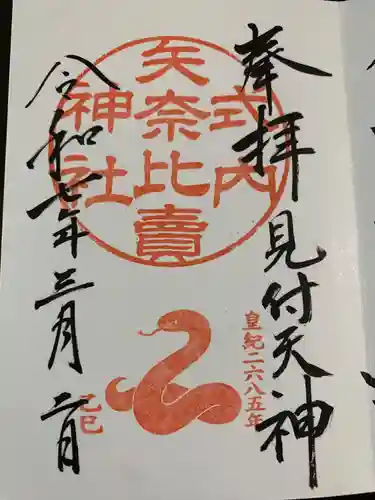 奉拝 見付天神
皇紀二六八五年
式内
矢奈比賣
神社
令和七年三月二日
乙巳